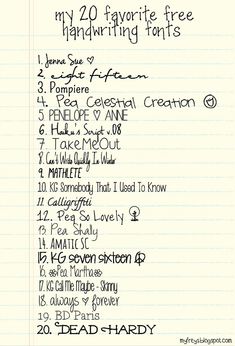 my 20 favorite free
handwriting fonts
1. Jenna Sue ♡
2. eight fifteen
3. Pompiere
4. Pea Celestial Creation
5. PENELOPE ♡ ANNE
6. Haiku's Script v.08
7. TakeMeOut
8. Can't Write Usually In Water
9. MATHLETE
10. KG Somebody That I Used To Know
11. Calligraffiti
12. Pea So Lovely
13. Pea Shaly
14. AMATIC SC
15. KG seven sixteen
16. Pea Martha
17. KG Call Me Maybe - Skinny
18. always ♡ forever
19. BD Paris
20. DEAD HARDY
myfreys.blogspot.com